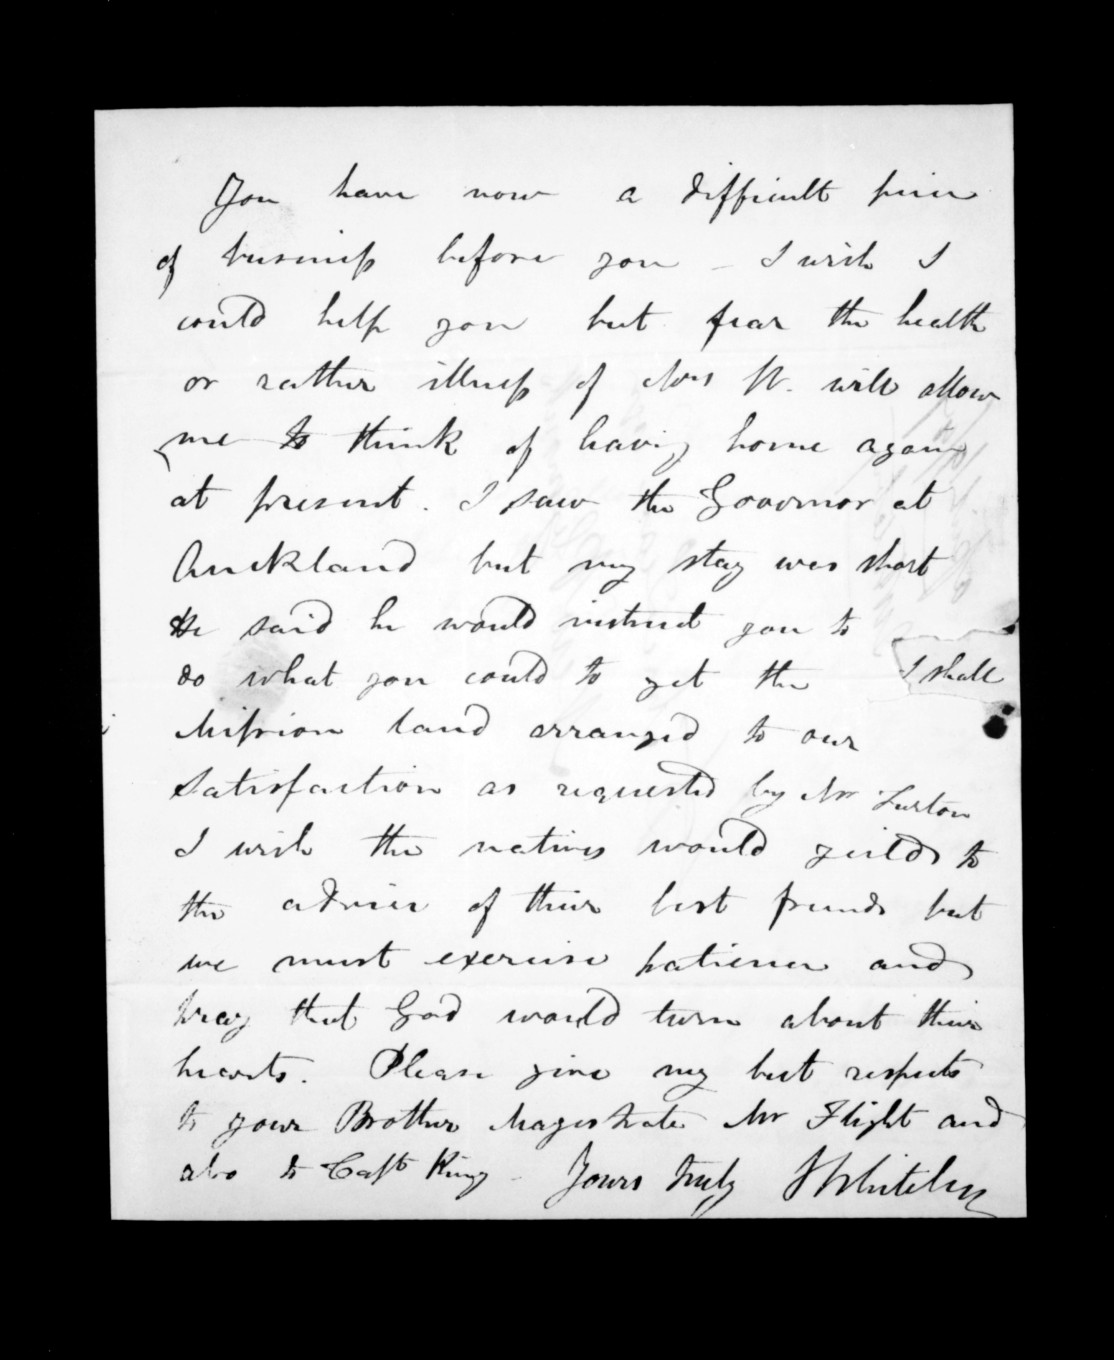 You have now a difficult piece
of business before you - I wish I
could help you but fear the health
or rather illness of Mrs W. will allow
me to think of leaving home again
at present. I saw the Governor at
Auckland but my stay was short
He said he would instruct you to
do what you could to get the
I shall
Mission land arranged to our
satisfaction as requested by Mr Turton
I wish the natives would yield to
the advice of their best friends but
we must exercise patience and
pray that God would turn about their
hearts. Please give my best respects
to your Brother Magistrate Mr Flight and
also to Capt King - Yours truly J Whiteley